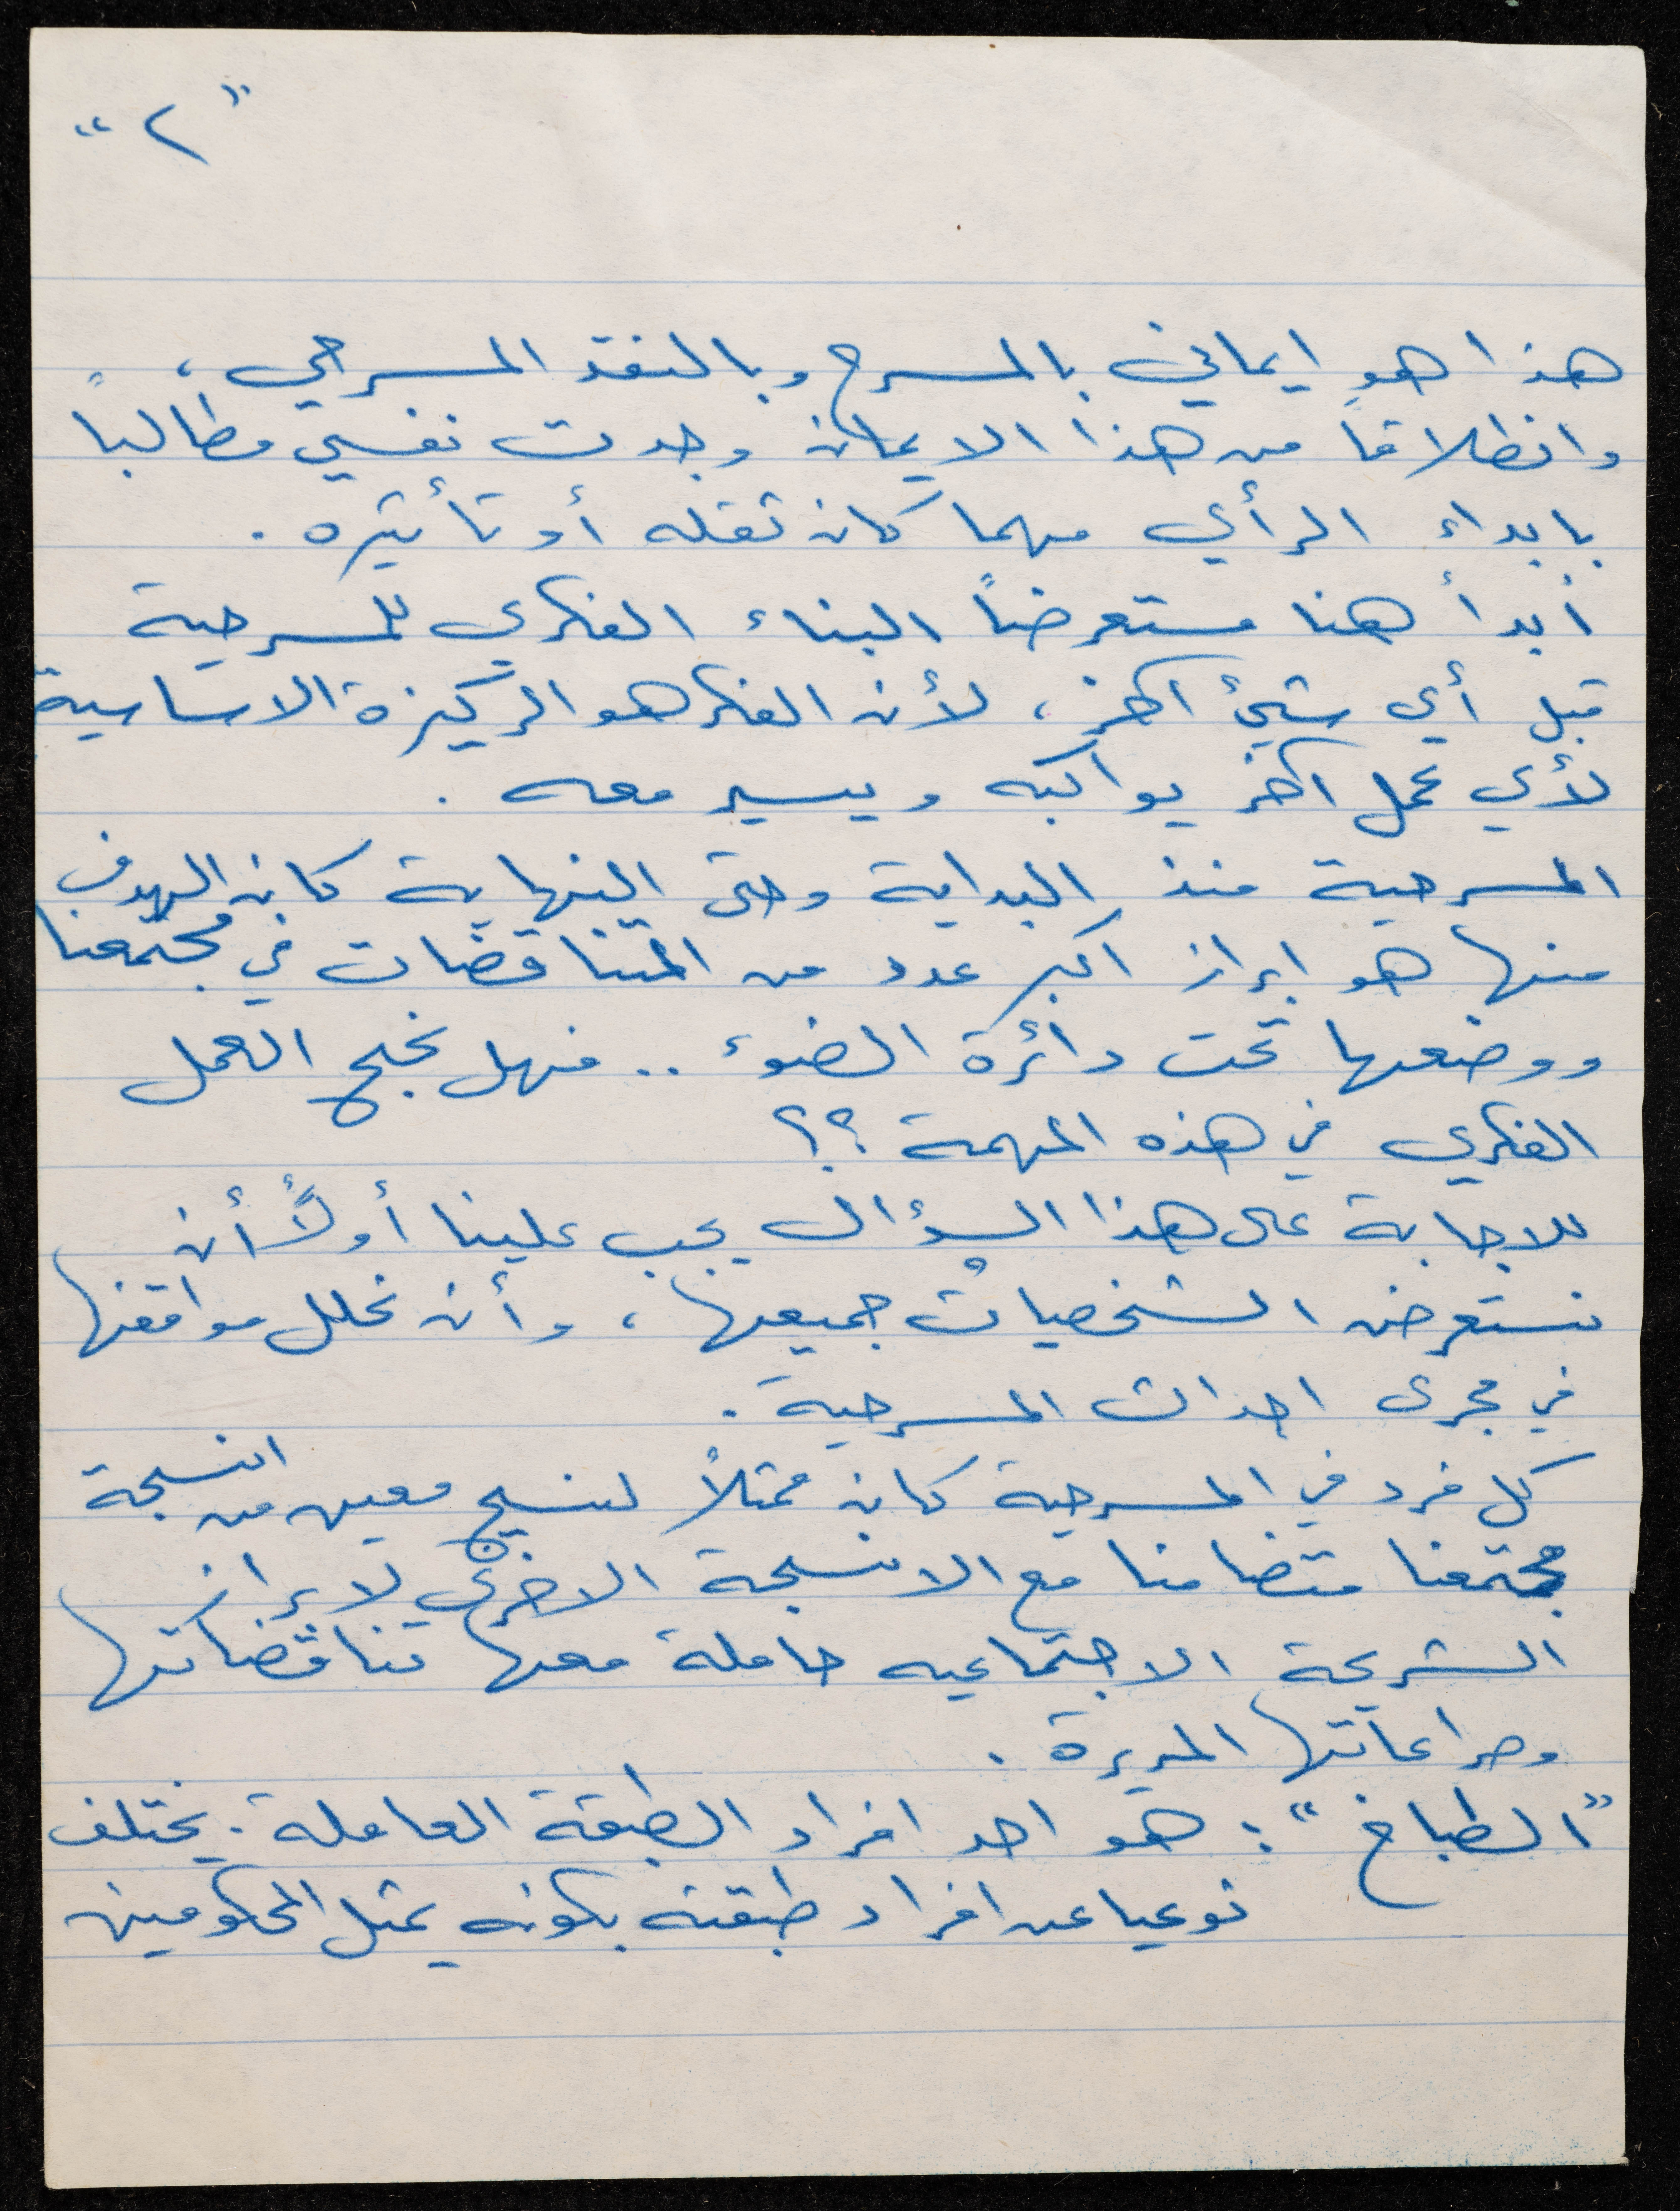 "٢"
هذا هو ايماني بالمسرح وبالنقد المسرحي،
وانطلاقاً من هذا الايمان وجدت نفسي مطالباً
بابداء الرأي مهما كان ثقله أو تأثيره .
أبدأ هنا مستعرضاً البناء الفكري للمسرحية
قبل أي شيئ آخر، لأن الفكر هو الركيزة الاساسية
لأي عمل آخر يواكبه ويسير معه .
المسرحية منذ البداية وحتى النهاية كان الهدف
منها هو ابراز اكبر عدد من المتناقضات في مجتمعنا
ووضعها تحت دائرة الضوء .. فهل نجح العمل
الفكري في هذه المهمة ؟؟
للاجابة على هذا السؤال يجب علينا أولاً أن
نستعرض الشخصيات جميعها، وأن نحلل مواقفها
في مجرى احداث المسرحية .
كل فرد في المسرحية كان ممثلاً لنسيج معين من انسجة
مجتمعنا متضامنا مع الانسجة الاخرى لابراز
الشريحة الاجتماعيه حاملة معها تناقضاتها
وصراعاتها المريرة .
"الطباخ" : هو احد افراد الطبقة العاملة . يختلف
نوعيا عن افراد طبقته بكونه يمثل المحكومين